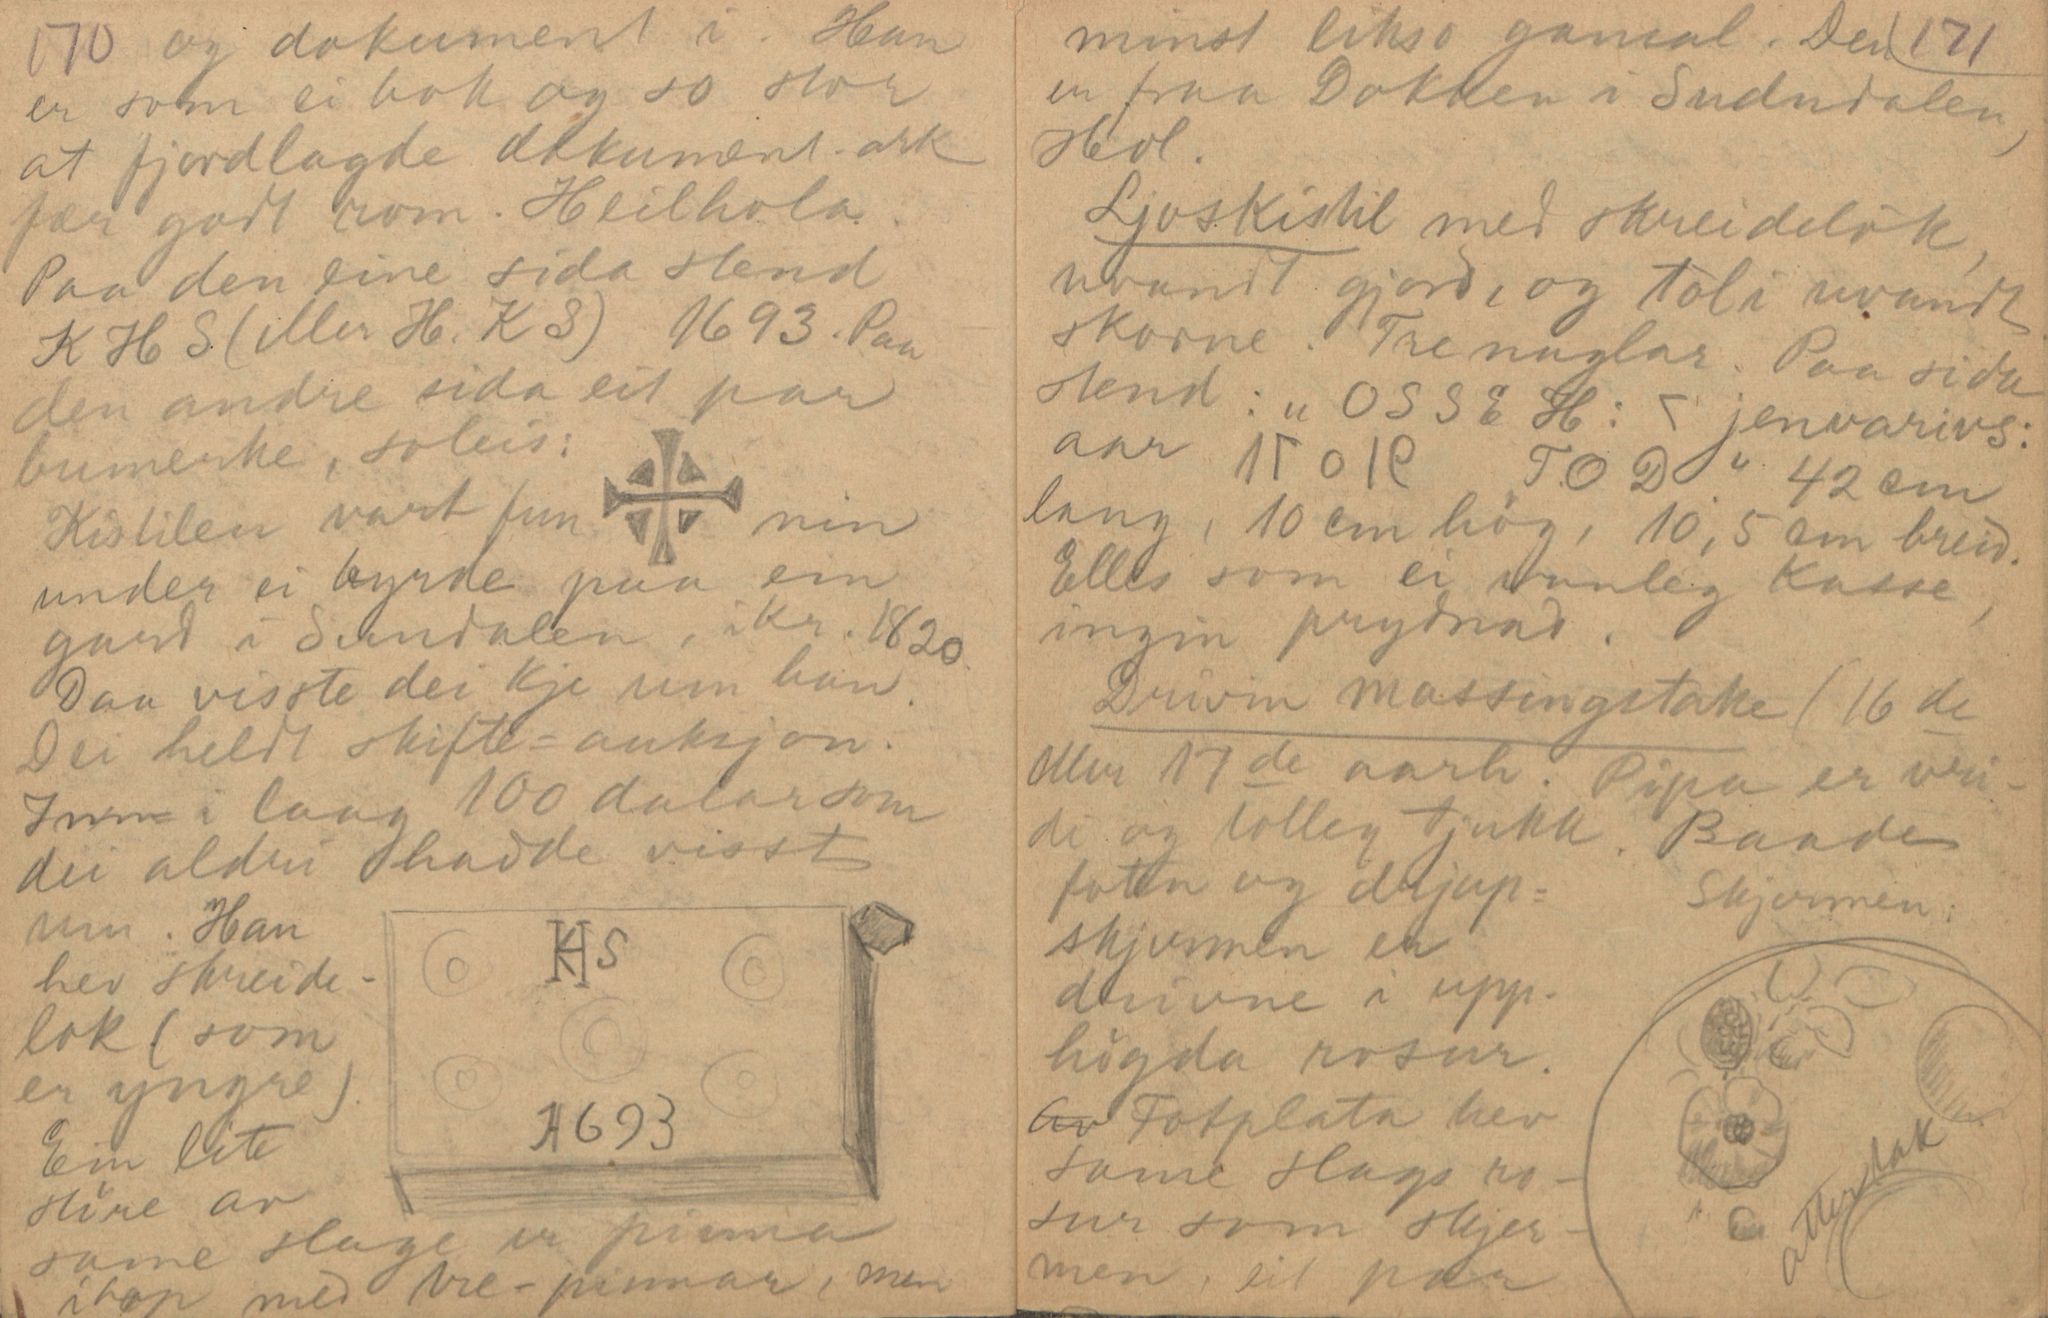 170 og dokument i. Han
er som ei bok og so stor
at fjordlagde dokument-ark
fær godt rom. Heilhola.
Paa den eine sida stend
K H S (eller H. K S) 1693. Paa
den andre sida eit par
bumerke, soleis:
Kistilen vart fun nin
under ei byrde paa ein
gard i Sundalen, ikr. 1820.
Daa visste dei kje um han.
Dei heldt skifte-auksjon.
i laag 100 dalar som
dei aldri hadde visst
um. Han
hev skreide-
lok (som
er yngre).
Ein lite
störe av
same slage er pinna
ihop med tre-pinnar, men
HKS
1693
minst likso gamal. Den 171
er fraa Dokken i Sudndalen,
Hol.
Ljoskistil med skreidelök,
uvandt gjord, og tol i uvandt
skorne. Tre naglar. Paa sida
stend: „ OSSE H: jenvarivs:
aar TOD " 42 cm
lang, 10 cm hög, 10,5 cm breid.
Elles som ei vanleg kasse,
ingin prydnad.
Drivin massingstake (16 de
eller 17 de aarh. Pipa er vri-
di og tolleg tjukk. Baade
foten og drjup-
skjermen er
drivne i upp-
högda rosur.
Av Fotplata hev
same slags ro-
sur som skjer-
men, eit par
Skjermen:
attersлak